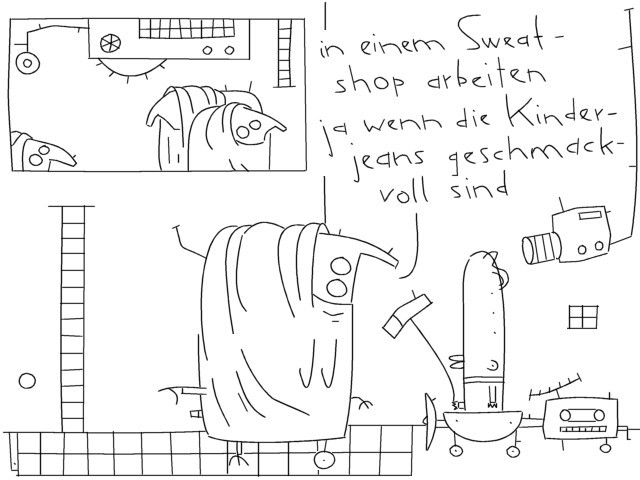 in einem Sweat-
shop arbeiten
ja wenn die Kinder-
jeans geschmack-
voll sind